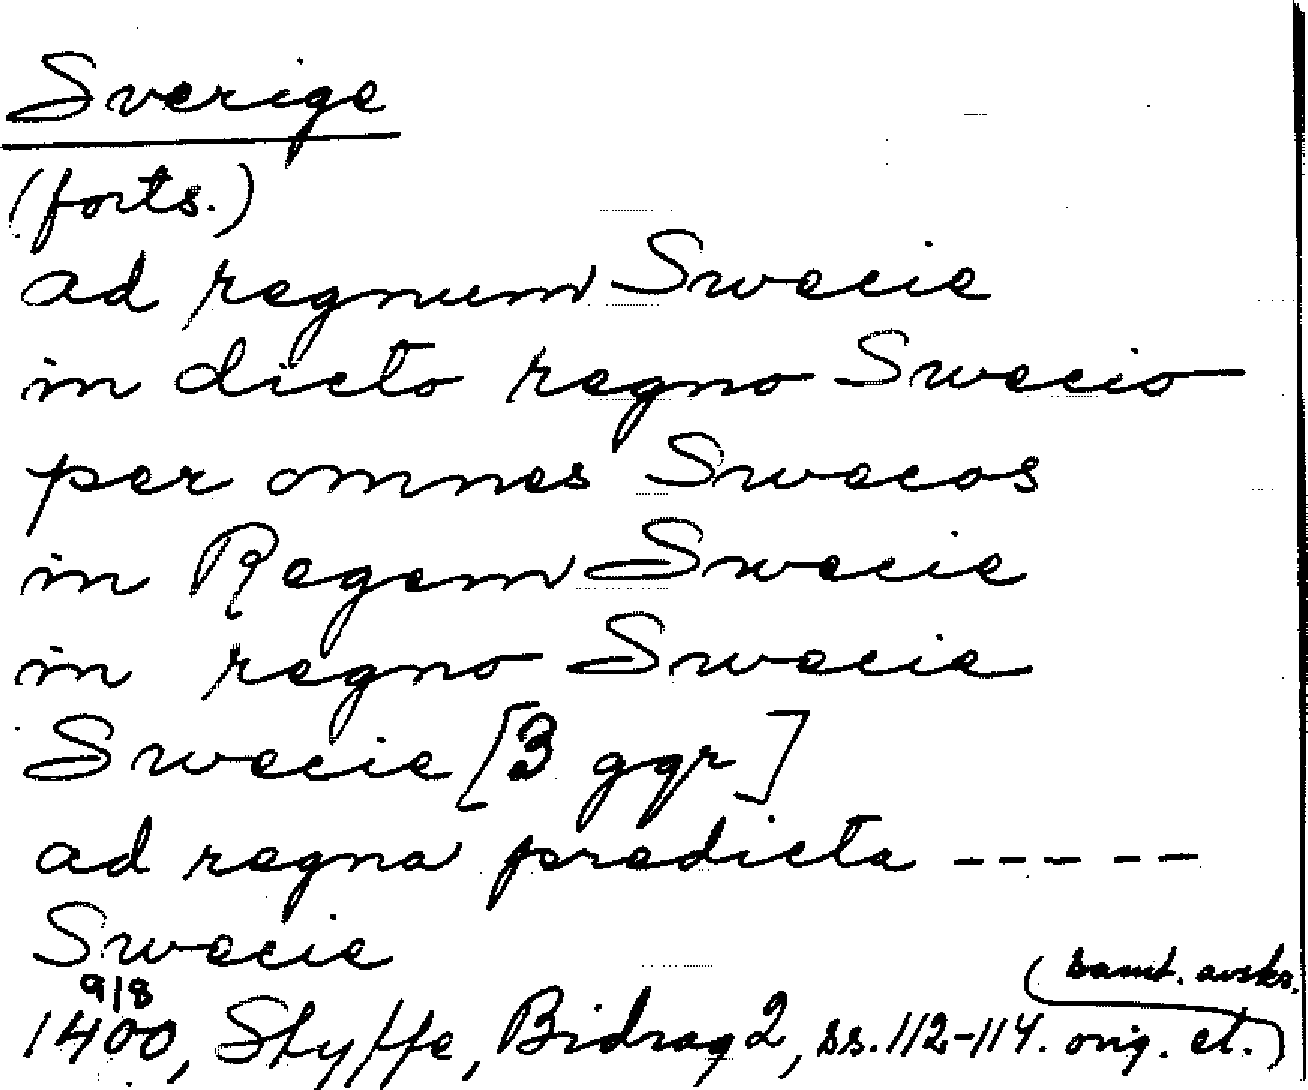 Sverige
(forts.)
ad regnum Swecie
in dicto regno Swecio
per omnes Swecos
in Regem Swecie
in regno Swecie
Swecie [3 ggr]
ad regna predicta -----
Swecie
9/8
1400, Styffe, Bidrag 2, ss. 112-114. orig. et.
(samt. avskr.)